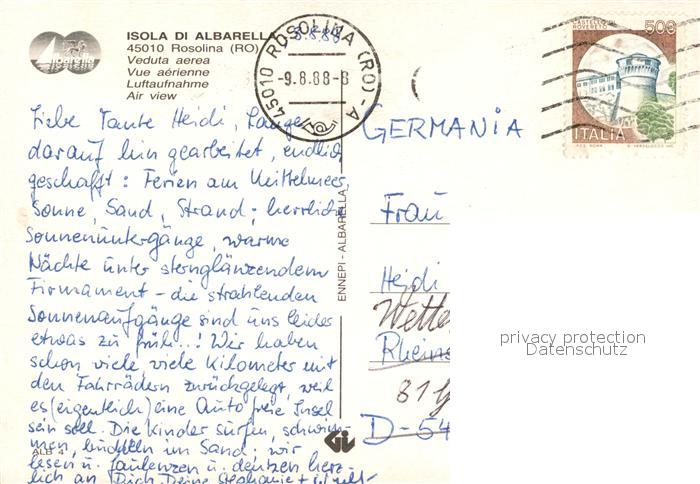 ISOLA DI ALBARELLA
45010 Rosolina (RO)
Veduta aerea
Vue aérienne
Luftaufnahme
Air view
5.8.88
45010 ROSOLINA (RO) - A
-9.8.88-8
CASTELLO DI
ROVERETO
500
ITALIA
I.P.Z.S. ROMA
Liebe Tante Heidi, Lange
darauf hin gearbeitet, endlich
geschafft: Ferien am Mittelmeer,
Sonne, Sand, Strand; herrliche
Sonnenuntergänge, warme
Nächte unter sternglänzendem
Firmament - die strahlenden
Sonnenaufgänge sind uns leider
etwas zu früh..! Wir haben
schon viele, viele Kilometer mit
den Fahrrädern zurückgelegt, weil
es (eigentlich) eine Auto freie Insel
sein soll. Die Kinder surfen, schwim-
men, buddeln im Sand; wir
lesen u. faulenzen u. denken herz-
lich an Dich, Deine Stephanie +
ALB 4
ENNEPI - ALBARELLA
GERMANIA
Frau
Heidi
Wette
Rheins
81
D-54
privacy protection
Datenschutz